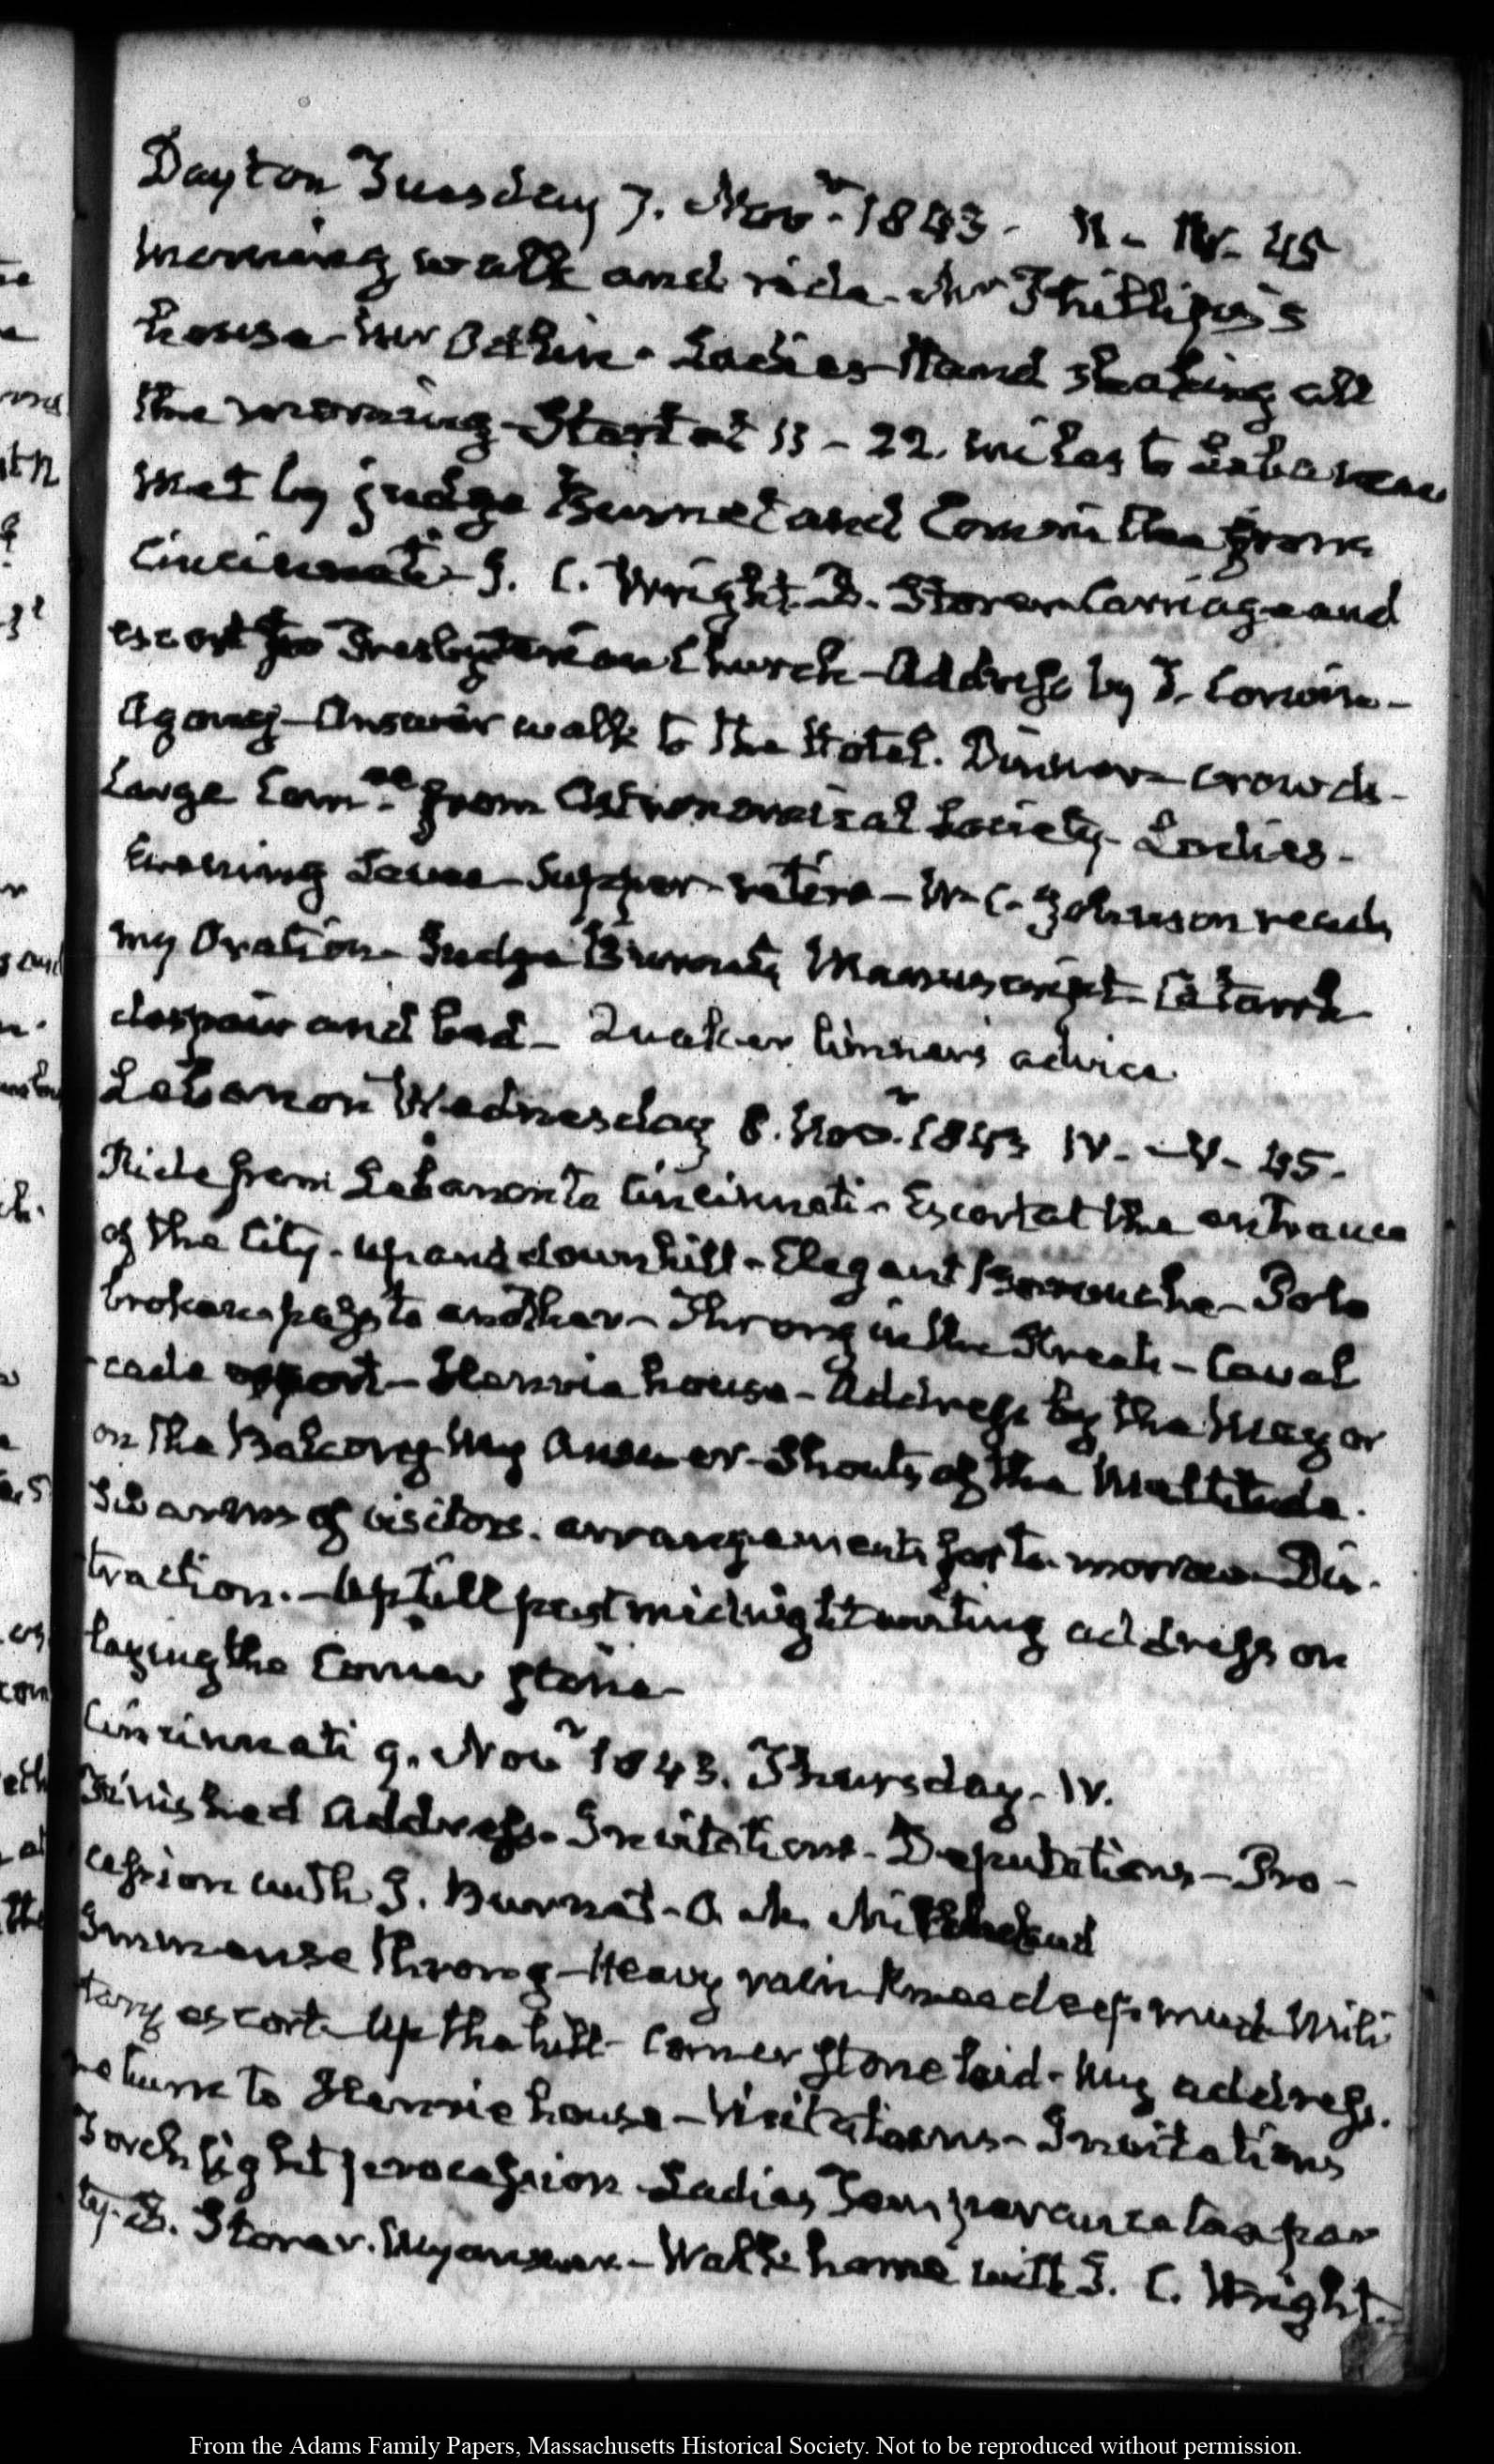 Dayton Tuesday 7. Novr. 1843. II - IV. 45
morning walk and ride - Mr Phillips's
house - Mr Odlin - Ladies - Hand shaking all
the morning - Start at 11 - 22. miles to Lebanon
met by judge Burnet and Committee from
Cincinnati - J. C. Wright. B. Storer Carriage and
escort to Presbyterian Church - Address by T. Corwin -
Agony - Answer walk to the Hotel. Dinner - crowds -
Large Comee. from Astronomical Society - Ladies -
Evening Levee - Supper - retire - W. C. Johnson reads
my Oration - Judge Burnet's Manuscript - Catarrh
despair and bed - Quaker limner's advice
Lebanon Wednesday 8. Novr. 1843 IV. - V - 45.
Ride from Lebanon to Cincinnati - Escort at the entrance
of the City - up and down hill - Elegant Barouche - Pole
broken - pass to another - Throng in the Streets - Caval
cade - Henrie house - Address by the Mayor
on the Balcony - My Answer - Shouts of the Multitude.
Swarms of visitors. arrangements for to-morrow - Dis-
traction. - Up till past midnight writing address on
laying the Corner stone -
Cincinnati 9. Novr 1843. Thursday - IV.
Finished Address - Invitations - Deputations - Pro -
cession with J. Burnet - O. M. Mitchel and
Immense throng - Heavy rain - Knee deep mud - Mili
tary escort - Up the hill - Corner Stone laid - My address.
return to Henrie house - Visitations - Invitations
Torch light procession - Ladies Temperance tea par
ty. B. Storer. My answer - Walk home with J. C. Wright.
From the Adams Family Papers, Massachusetts Historical Society. Not to be reproduced without permission.